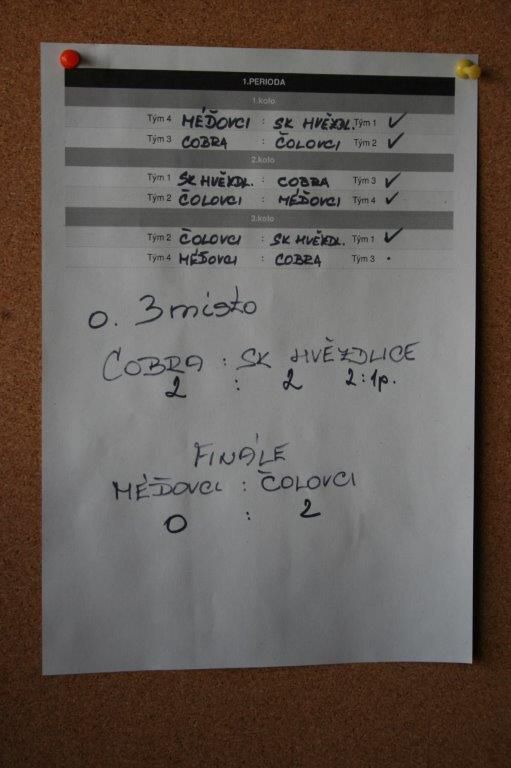 1.PERIODA
1.kolo
Tým 4 MÉĎOVCI : SK HVĚZDL. Tým 1 ✓
Tým 3 COBRA : ČOLOVCI Tým 2 ✓
2.kolo
Tým 1 SK HVĚZDL. : COBRA Tým 3 ✓
Tým 2 ČOLOVCI : MÉĎOVCI Tým 4 ✓
3.kolo
Tým 2 ČOLOVCI : SK HVĚZDL. Tým 1 ✓
Tým 4 MÉĎOVCI : COBRA Tým 3 .
o. 3 místo
COBRA : SK HVĚZDLICE
2 : 2 2:1p.
FINÁLE
MÉĎOVCI : ČOLOVCI
0 : 2